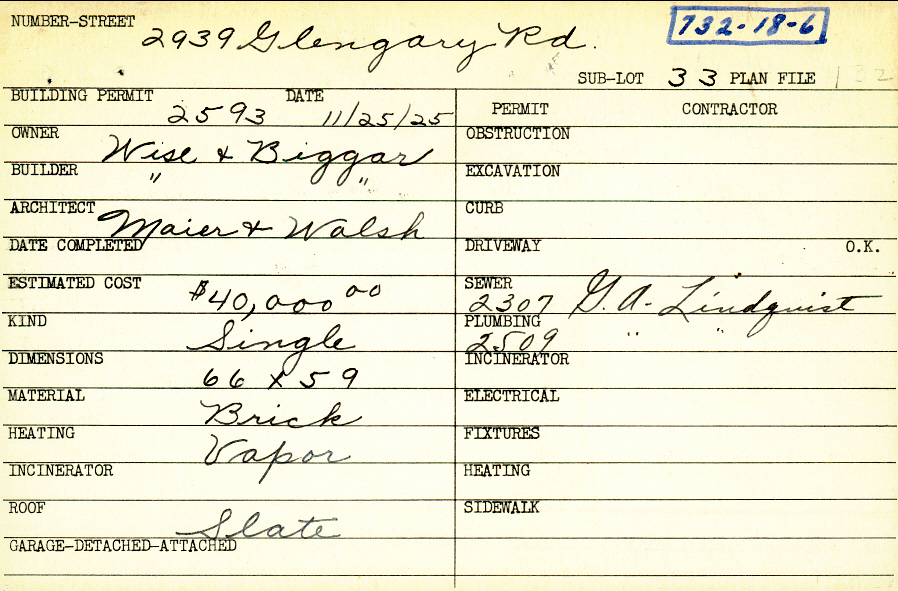 NUMBER-STREET 2939 Glengary Rd. 732-18-6
SUB-LOT 33 PLAN FILE 132
BUILDING PERMIT 2593 DATE 11/25/25
OWNER Wise & Biggar
BUILDER " "
ARCHITECT Maier & Walsh
DATE COMPLETED
ESTIMATED COST $40,000 00
KIND Single
DIMENSIONS 66 x 59
MATERIAL Brick
HEATING Vapor
INCINERATOR
ROOF Slate
GARAGE-DETACHED-ATTACHED
PERMIT CONTRACTOR
OBSTRUCTION
EXCAVATION
CURB
DRIVEWAY O.K.
SEWER 2307 G. A. Lindquist
PLUMBING 2509 " "
INCINERATOR
ELECTRICAL
FIXTURES
HEATING
SIDEWALK